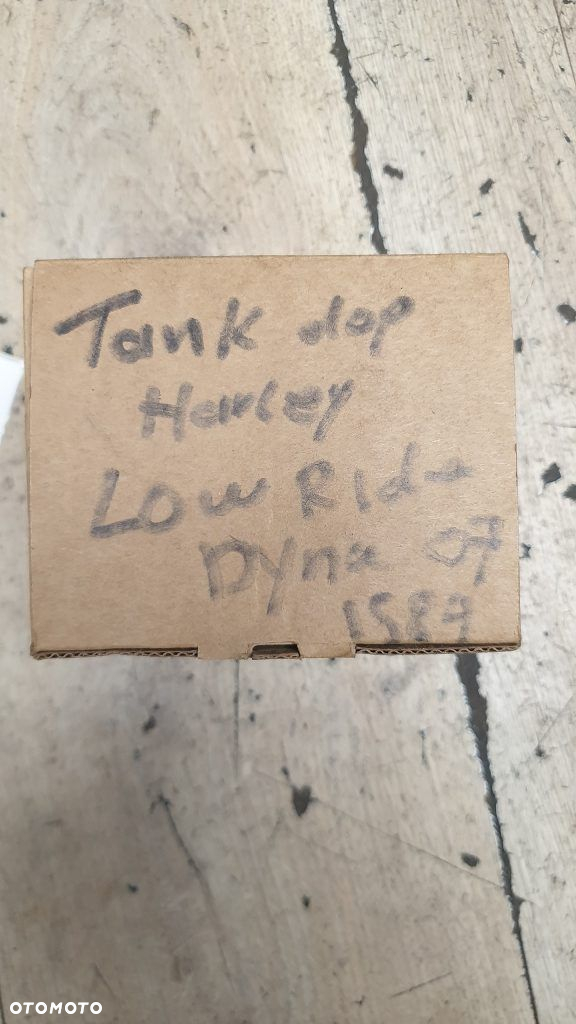 Tank dop
Harley
Low Ride
Dyna 07
1587
OTOMOTO